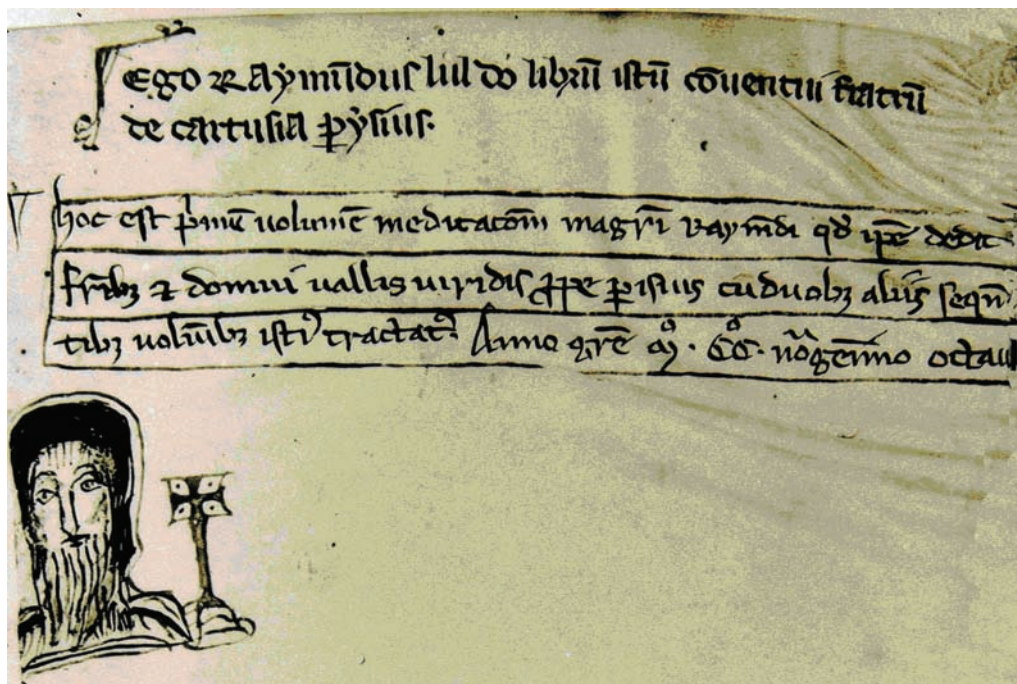 Ego Raymūdus lul do librū istū cōventui fratrū
de cartusia pysius.
hoc est p̃mū volumē meditacōm magr̃i Raymūdi qd̃ ip̃e dedit
fr̃ibꝫ ⁊ domui vallis viridis ꝓpe parisius cū duobꝫ aliis sequē
tibꝫ volūibꝫ isti⁹ tractat⁹. Anno gr̃e mº. CCº. nonagesimo octavo